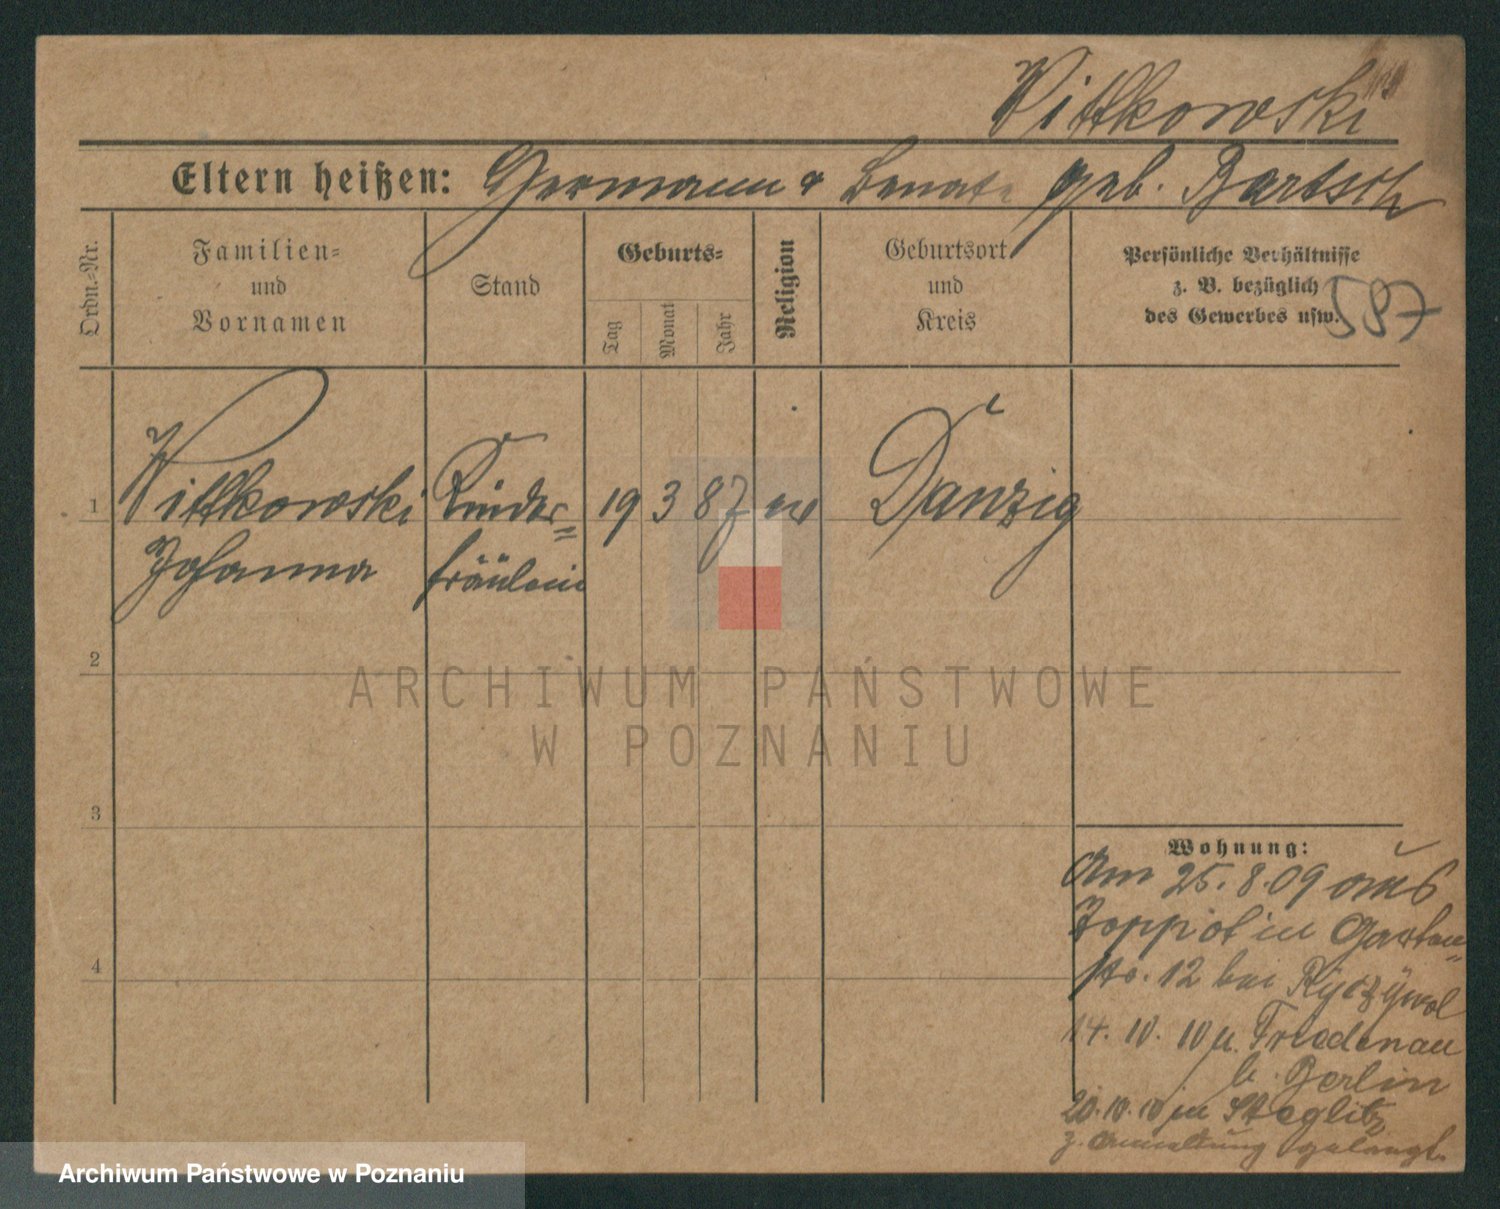 Wittkowski
Eltern heißen: Hermann & Renate geb. Bartsch
Ordn.-Nr.
Familien-
und
Vornamen
Stand
Geburts-
Tag
Monat
Jahr
Religion
Geburtsort
und
Kreis
Persönliche Verhältnisse
z. B. bezüglich
des Gewerbes usw.
587
1
Wittkowski Kinder- 19 3 87 ev Danzig
Johanna fräulein
2
3
4
Wohnung:
Am 25.8.09 aus
Zoppot in Garten-
str. 12 bei Ryczywol
14. 10. 10 n. Friedenau
b. Berlin
20.10.10 in Steglitz
z. Anmeldung gelangt.
ARCHIWUM PAŃSTWOWE
W POZNANIU
Archiwum Państwowe w Poznaniu